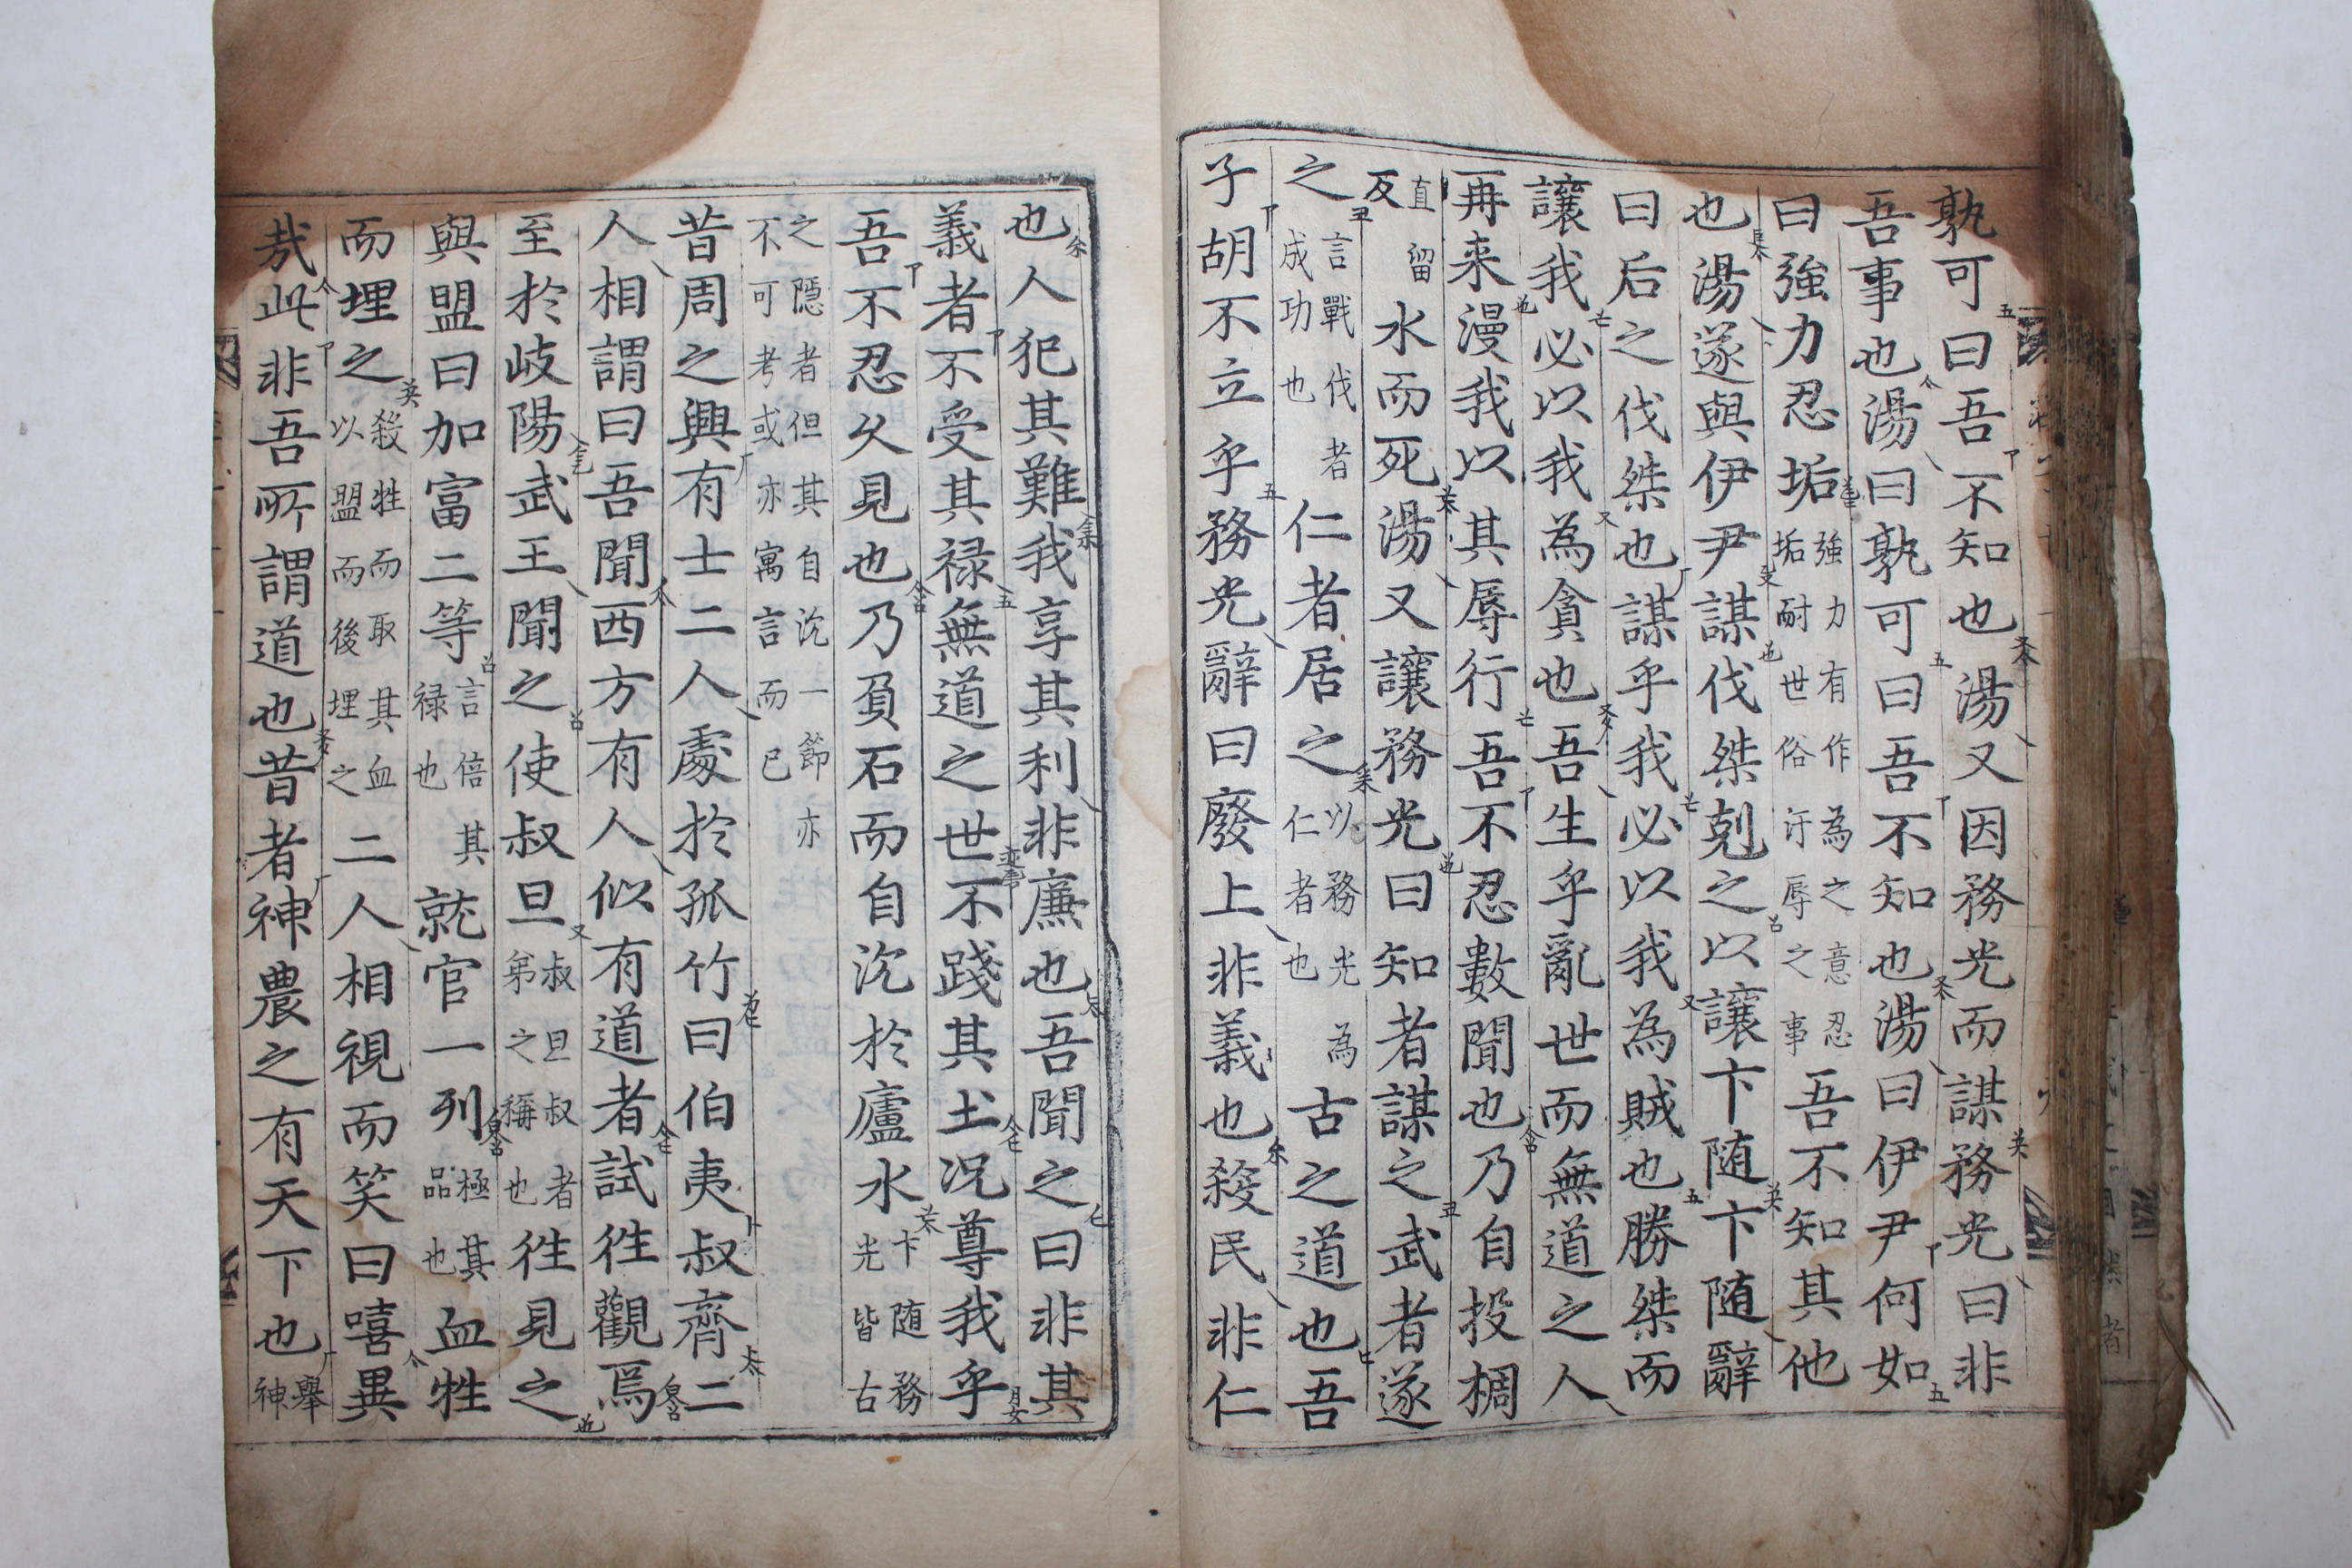 孰可曰吾不知也湯又因務光而謀務光曰非
吾事也湯曰孰可曰吾不知也湯曰伊尹何如
曰強力忍垢強力有作為之意忍垢耐世俗汙辱之事吾不知其他
也湯遂與伊尹謀伐桀剋之以讓卞随卞随辭
曰后之伐桀也謀乎我必以我為賊也勝桀而
讓我必以我為貪也吾生乎亂世而無道之人
再来漫我以其辱行吾不忍數聞也乃自投椆
直留反水而死湯又讓務光曰知者謀之武者遂
之言戰伐者成功也仁者居之以務光為仁者也古之道也吾
子胡不立乎務光辭曰廢上非義也殺民非仁
也人犯其難我享其利非廉也吾聞之曰非其
義者不受其禄無道之世不踐其土况尊我乎
吾不忍久見也乃負石而自沈於廬水卞随務光皆古
之隱者但其自沈一節亦不可考或亦寓言而已
昔周之興有士二人處於孤竹曰伯夷叔齊二
人相謂曰吾聞西方有人似有道者試徃觀焉
至於岐陽武王聞之使叔旦叔旦叔者弟之稱也徃見之
與盟曰加富二等言倍其禄也就官一列極其品也血牲
而埋之殺牲而取其血以盟而後埋之二人相視而笑曰嘻異
哉此非吾所謂道也昔者神農之有天下也舉神